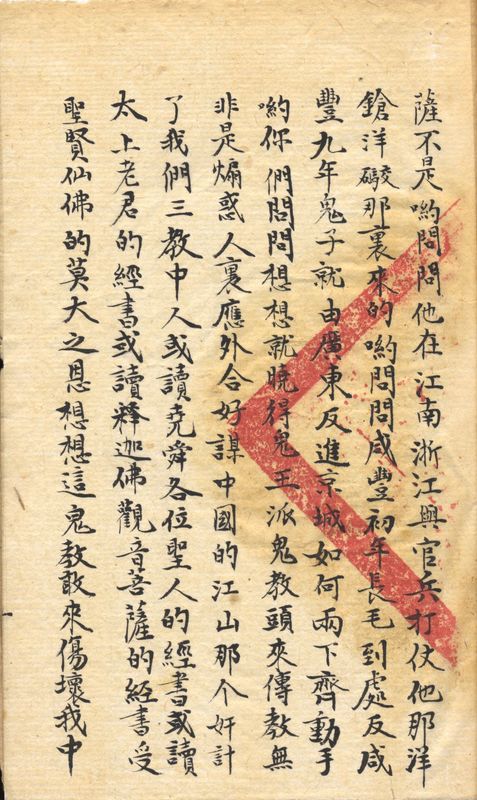 薩不是喲問問他在江南浙江與官兵打仗他那洋
鎗洋礮那裏來的喲問問咸豐初年長毛到處反咸
豐九年鬼子就由廣東反進京城如何兩下齊動手
喲你們問問想想就曉得鬼王派鬼教頭來傳教無
非是煽惑人裏應外合好謀中國的江山那个奸計
了我們三教中人或讀堯舜各位聖人的經書或讀
太上老君的經書或讀釋迦佛觀音菩薩的經書受
聖賢仙佛的莫大之恩想想這鬼教敢來傷壞我中